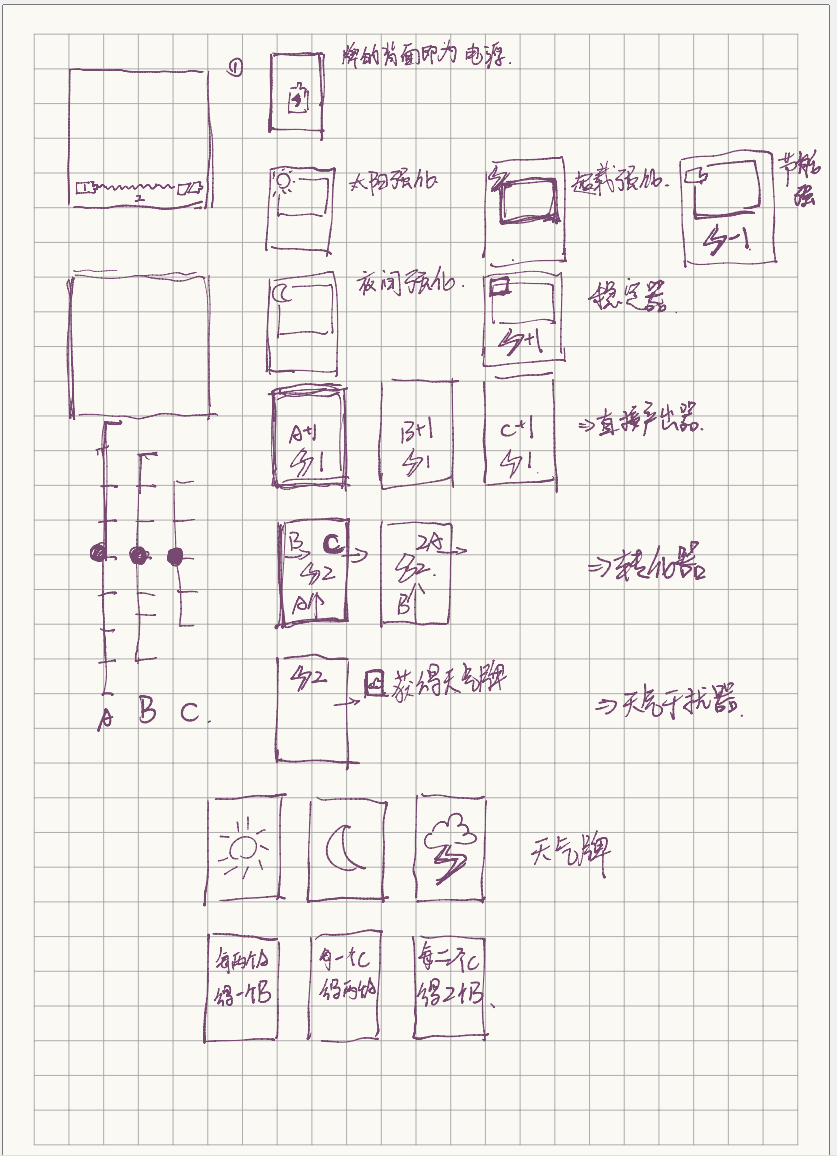 ① 牌的背面即为电源.
1 2
2
太阳强化
超载强化.
节能
强
⚡-1
夜间强化.
稳定器.
⚡+1
A+1
⚡1
B+1
⚡1
C+1
⚡1.
⇒直接产出器.
B C
⚡2
A
2A
⚡2.
B
⇒转化器
⚡2
获得天气牌
⇒天气干扰器.
A B C.
天气牌
每两个A
得一个B
每一个C
得两个A
每二个C
得2个B、